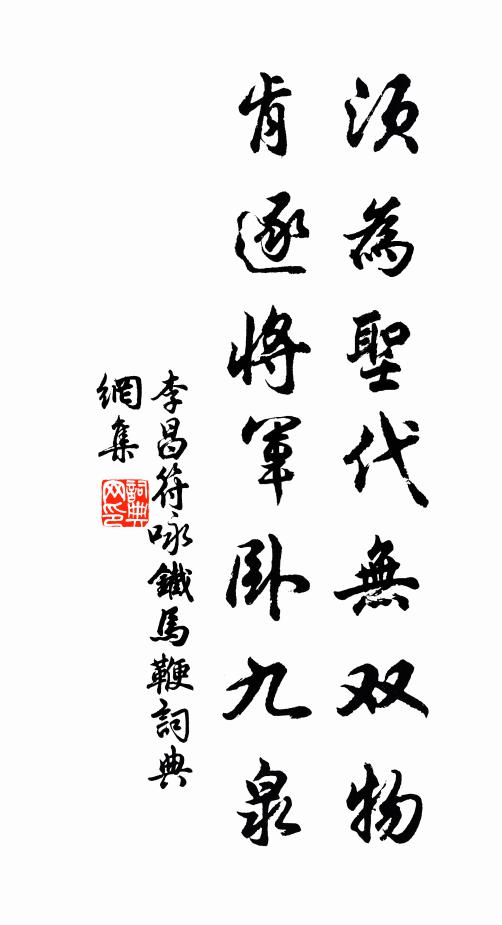 須為聖代無双物
肯逐將軍臥九泉
李昌符咏鐵馬鞭詞典
網集
詞典
网印